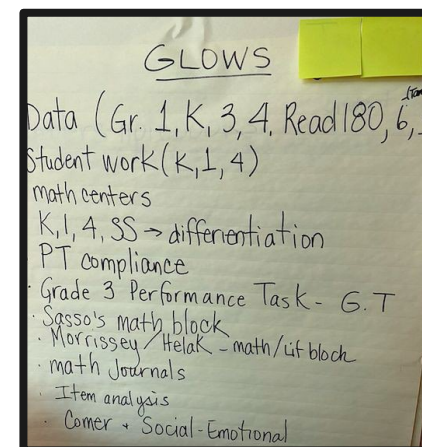 GLOWS
Data (Gr. 1, K, 3, 4, Read 180, 6,
Student work (K, 1, 4)
math centers
K, 1, 4, SS → differentiation
PT compliance
· Grade 3 Performance Task - G.T
· Sasso's math block
· Morrissey / Helak - math/Lit block
· math Journals
· Item analysis
· Comer + Social-Emotional